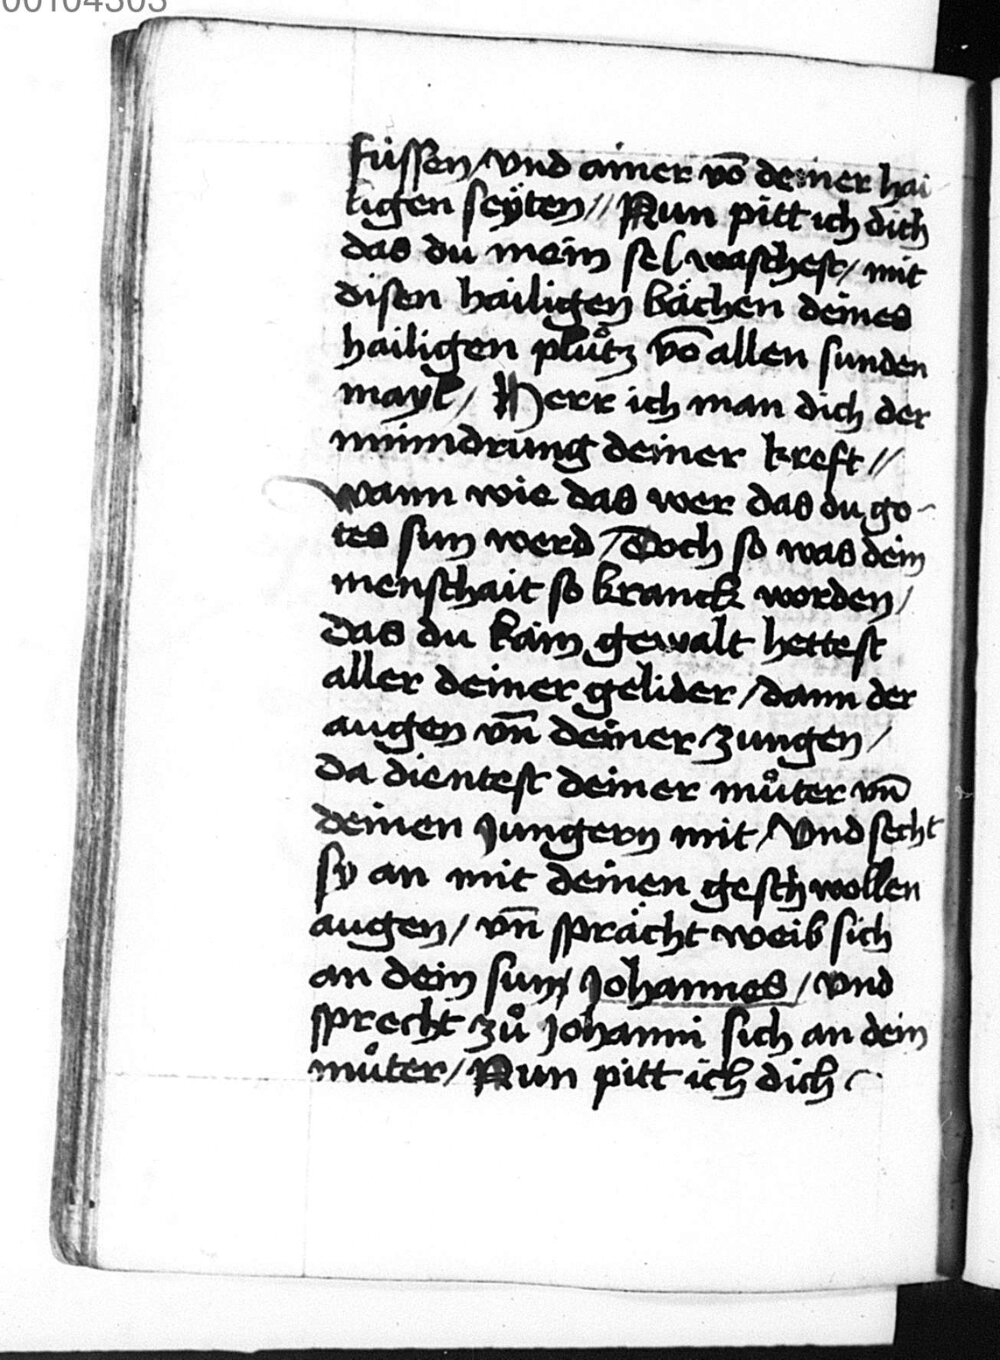 00104303
füssen / vnd ainer vō deiner hai
ligen seÿten // Nun pitt ich dich
das du mein sel waschest / mit
disen hailigen bächen deines
hailigen plůtz vō allen sunden
mayl / Herr ich man dich der
mindrung deiner kreft //
wann wie das wer das du go-
tes sun werd / Doch so was dein
menschait so kranck worden /
das du kain gewalt hettest
aller deiner gelider / dann der
augen vn̄ deiner zungen /
da dientest deiner můter vn̄
deinen Jungern mit / Vnd secht
sy an mit deinen geschwollen
augen / vn̄ sprächt weib sich
an dein sun / Johannes / vnd
sprecht zů Johanni sich an dein
můter / Nun pitt ich dich